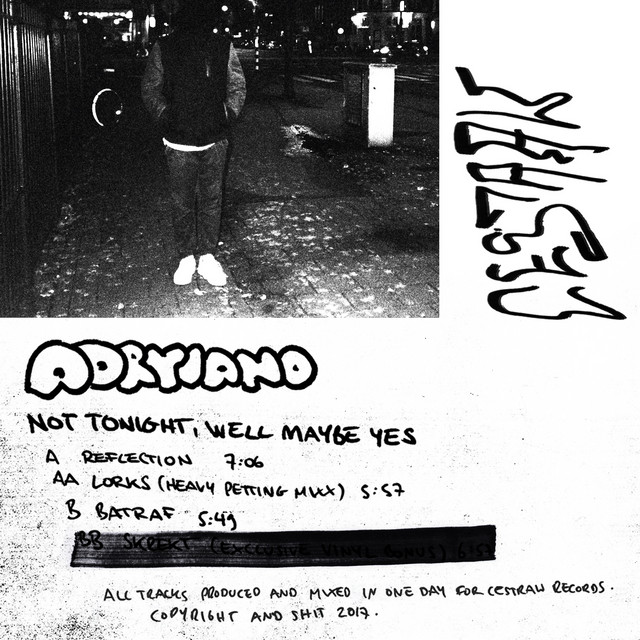 CESTRAW
ADRYIANO
NOT TONIGHT, WELL MAYBE YES
A REFLECTION 7:06
AA LORKS (HEAVY PETTING MIXX) 5:57
B BATRAF 5:49
BB SKREKT (EXCLUSIVE VINYL BONUS) 6:57
ALL TRACKS PRODUCED AND MIXED IN ONE DAY FOR CESTRAW RECORDS.
COPYRIGHT AND SHIT 2017.